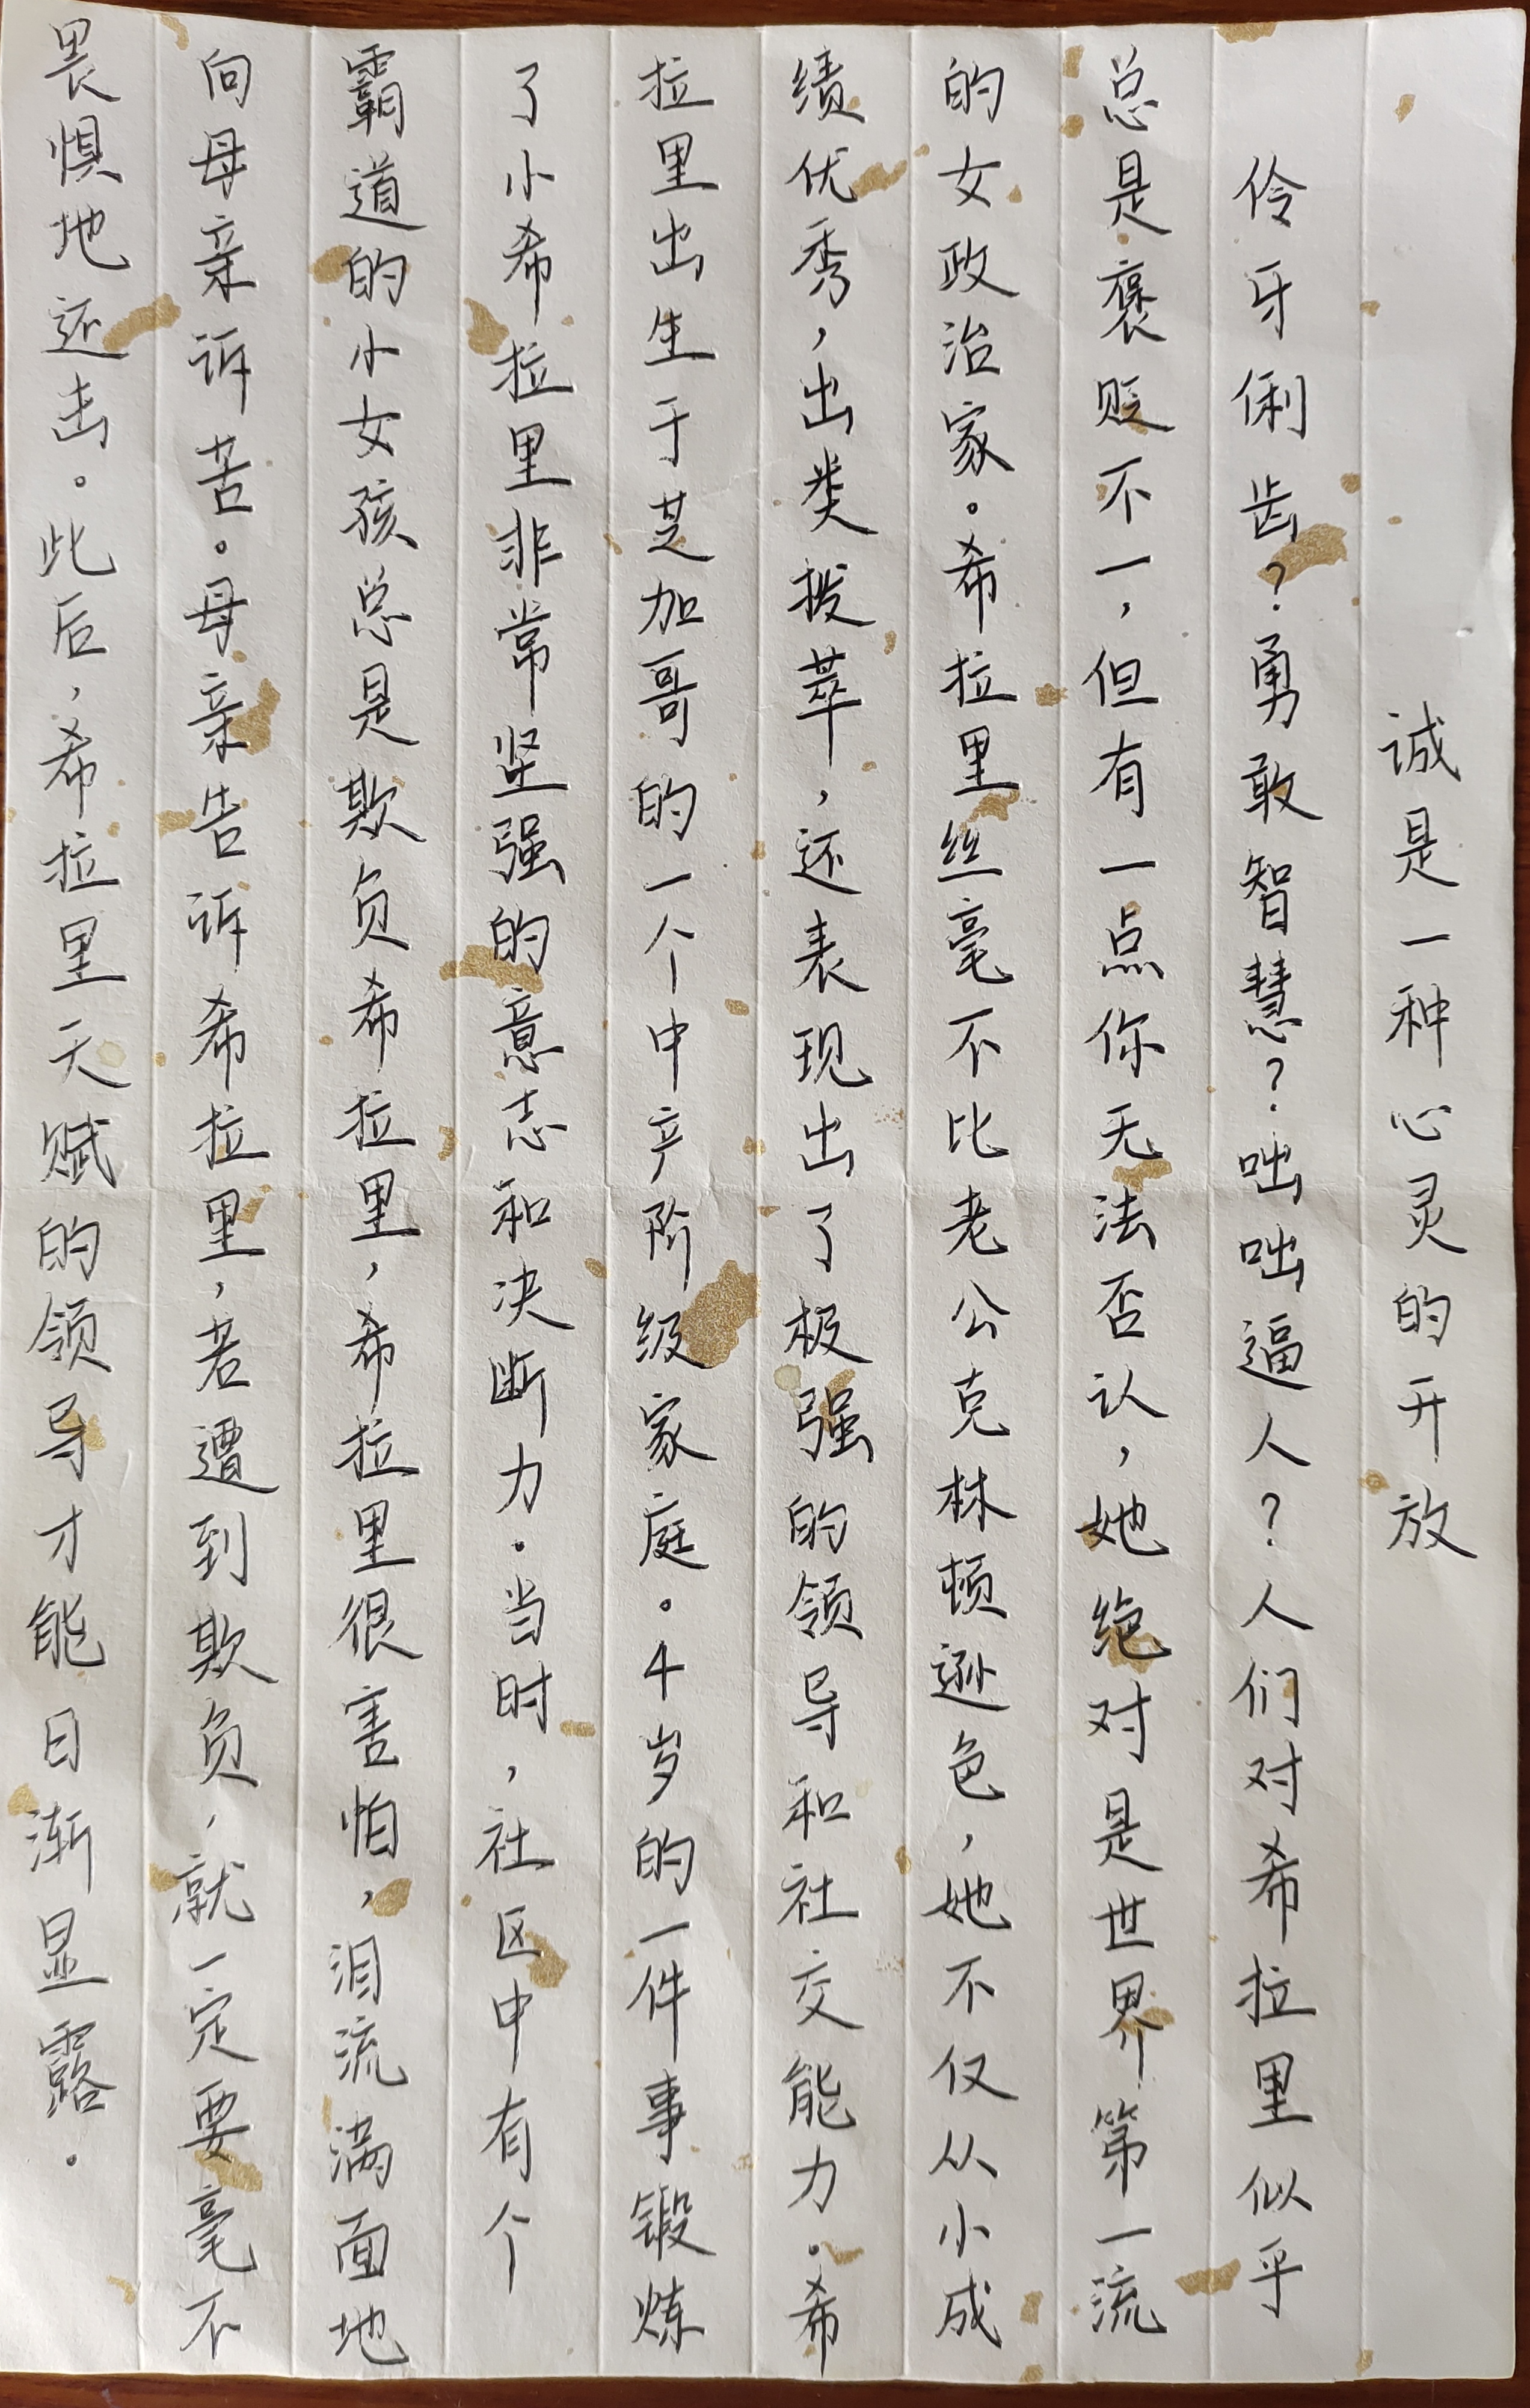 诚是一种心灵的开放
伶牙俐齿?勇敢智慧?咄咄逼人?人们对希拉里似乎
总是褒贬不一,但有一点你无法否认,她绝对是世界第一流
的女政治家。希拉里丝毫不比老公克林顿逊色,她不仅从小成
绩优秀,出类拔萃,还表现出了极强的领导和社交能力。希
拉里出生于芝加哥的一个中产阶级家庭。4岁的一件事锻炼
了小希拉里非常坚强的意志和决断力。当时,社区中有个
霸道的小女孩总是欺负希拉里,希拉里很害怕,泪流满面地
向母亲诉苦。母亲告诉希拉里,若遭到欺负,就一定要毫不
畏惧地还击。此后,希拉里天赋的领导才能日渐显露。